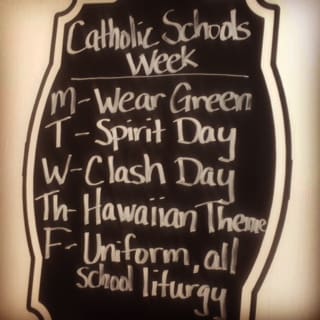 Catholic Schools
Week
M-Wear Green
T-Spirit Day
W-Clash Day
Th-Hawaiian Theme
F-Uniform, all
school liturgy